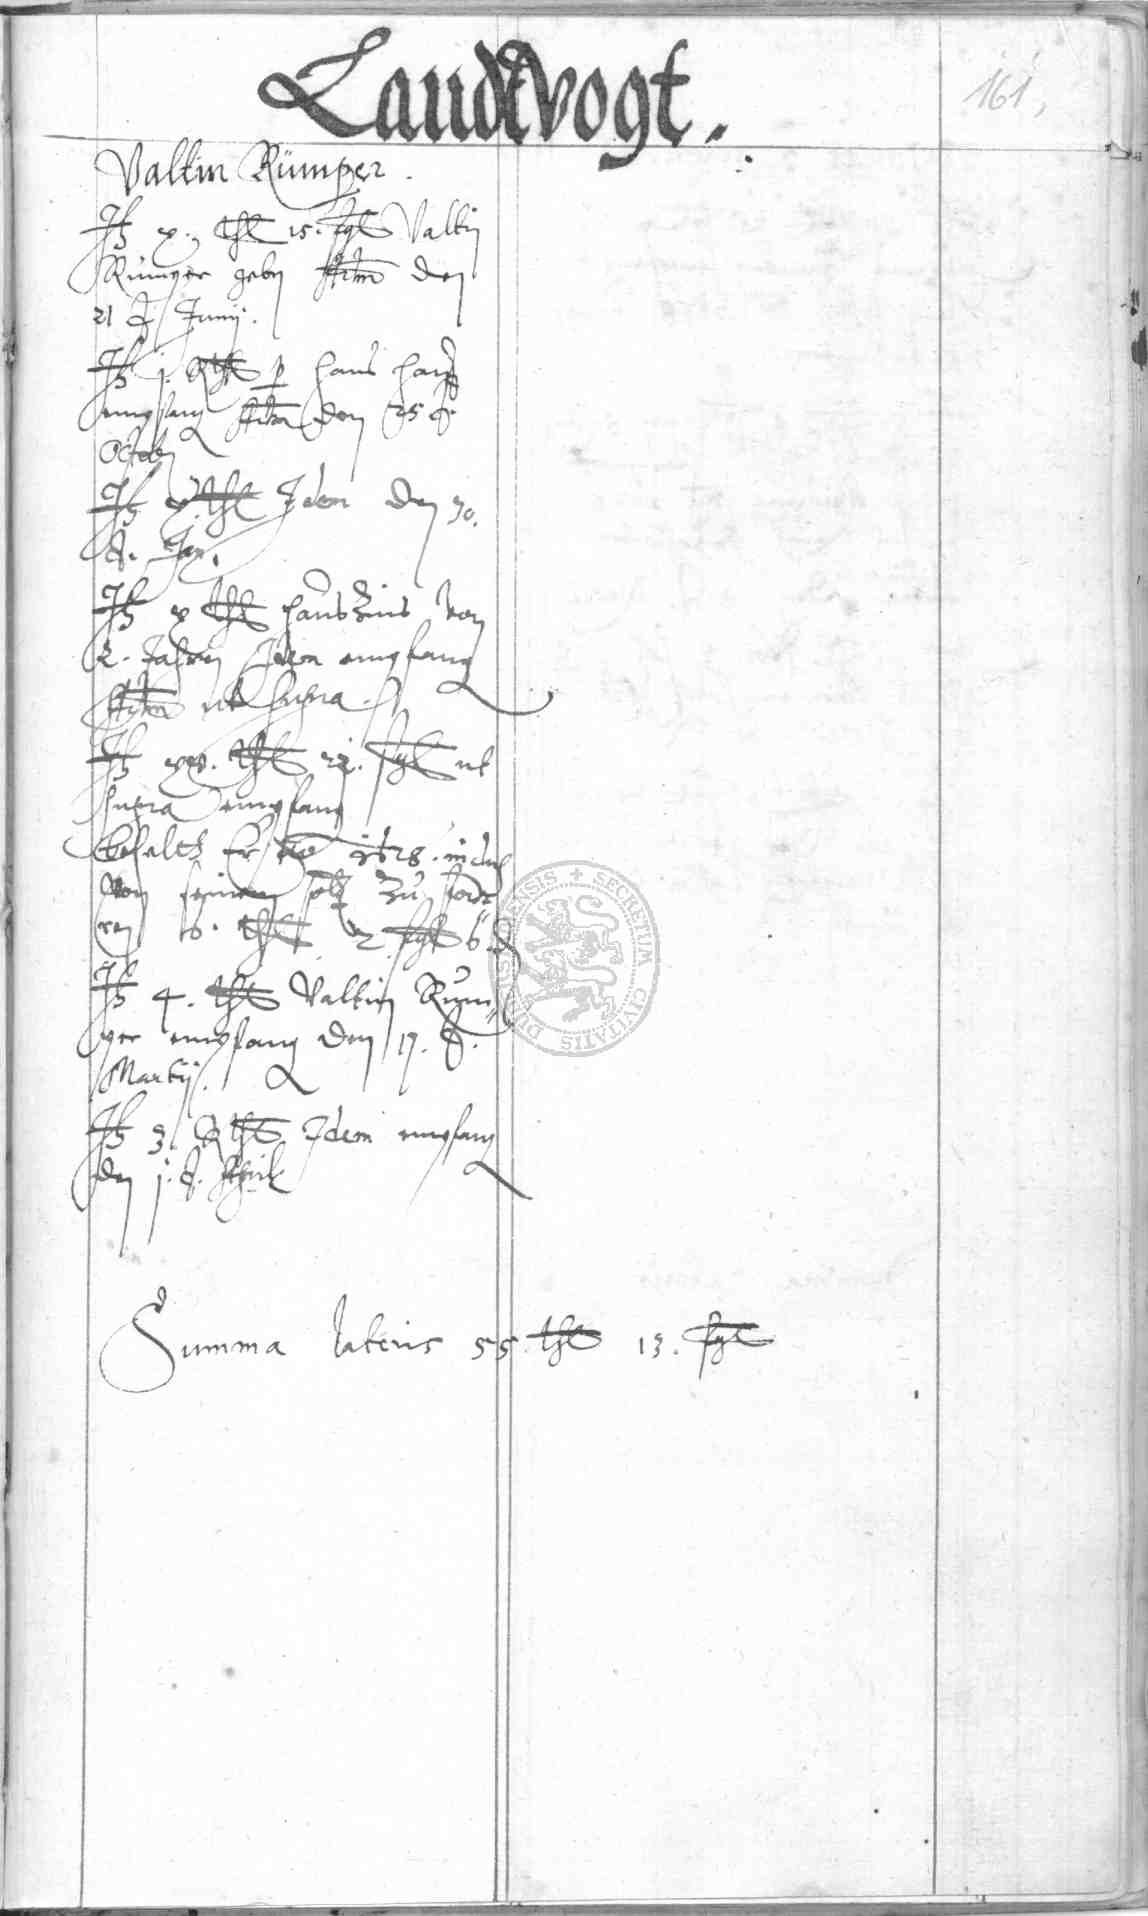 Landtvogt.
161,
Valtin Rümper.
It x. thl 15. sgl Valtin
Rümper geben den
21 Junij.
It j. Rthl p hans
empfang den 25
Octob
It thl Idem den 30.
It x thl hauszins von
2. Jahren Idem empfang
ut supra.
It xv. thl 22. sgl ut
supra empfang
behelts Er 1628.
von seinem zu forde
ren 6. thl 2 sgl 6 d
It 4. thl Valtin Rüm=
per empfang den 17. d.
Martij.
It 3 Rthl Idem empfang
den j. d. April
Summa lateris 55 thl 13. sgl
SECRETUM CIVITATIS